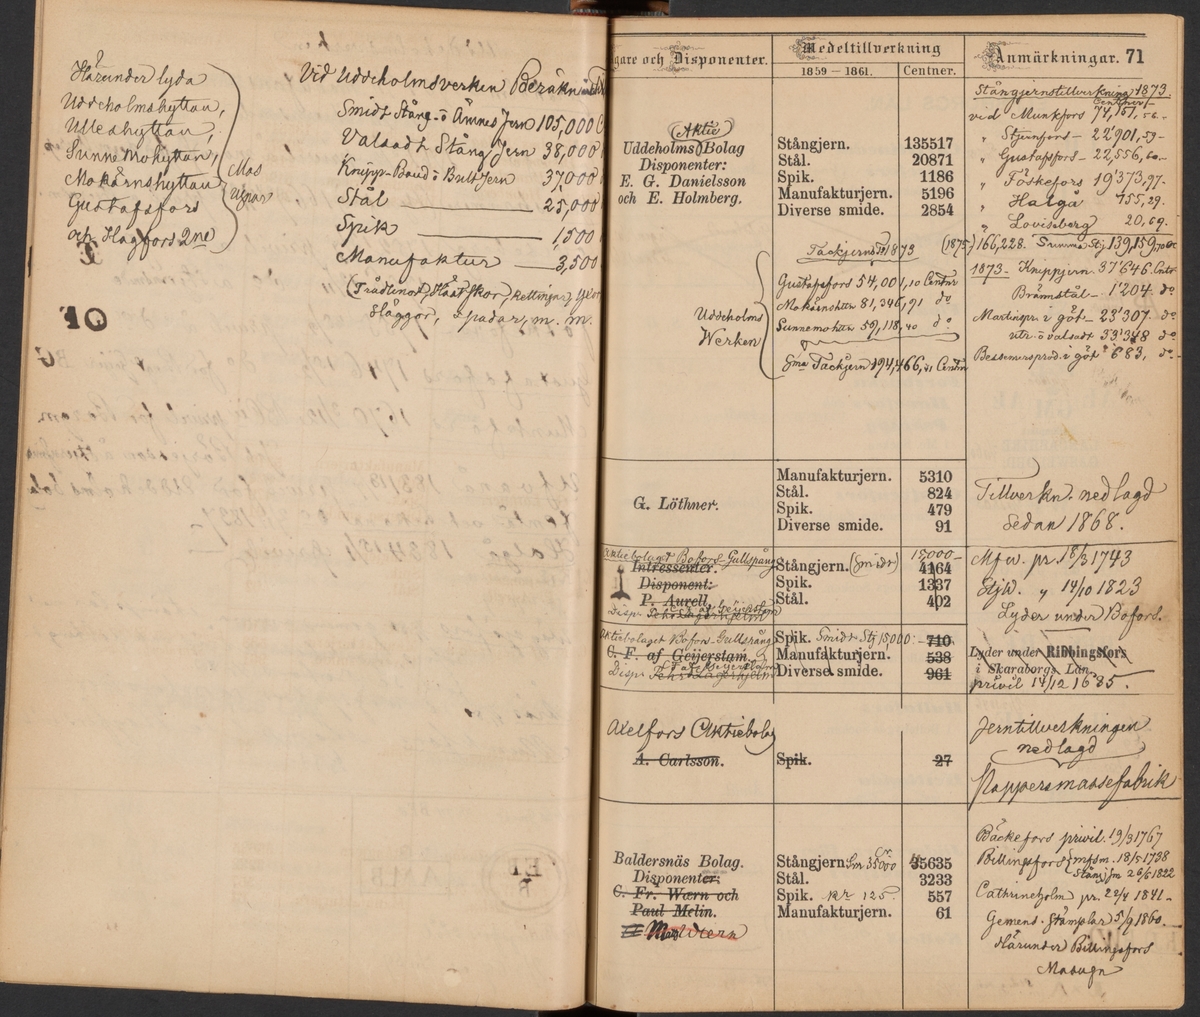 Härunder lyda
Uddeholmshyttan,
Ulleshyttan,
Sunnemohyttan,
Mokärnshyttan
Gustafsfors
och Hagfors 2ne
Mas
ugnar
Vid Uddeholmsverken
Smidt Stång- ö Ämnes Jern 105,000
Valsadt Stång Jern 38,000
Knipp-Band ö Bult Jern 37,000
Stål 25,000
Spik 1,500
Manufaktur 3,500
(Trådlinor, Hästskor, Kettingar,
Släggor, spadar, m. m.
gare och Disponenter.
Medeltillverkning
1859 — 1861. Centner.
Anmärkningar. 71
(Aktie)
Uddeholms Bolag
Disponenter:
E. G. Danielsson
och E. Holmberg.
Stångjern. 135517
Stål. 20871
Spik. 1186
Manufakturjern. 5196
Diverse smide. 2854
Stångjernstillverkning 1873
Centner
vid Munkfors 74,151,
" Stjernfors — 22'901,59-
" Gustafsfors — 22,556,
" Föskefors 19'373,97-
" Halgå 155,29.
" Lovisaberg 20,69.
(1875) 166,228. Summa Stj 139,159,
Tackjerns 1873
Uddeholms
Werken
Gustafsfors 54,001,10 Centnr
Mokärnshttn 81,346,91 do
Sunnemohttn 59,118,40 do
Sma Tackjern 194,466,41 Centnr
1873 — Knippjern 37'646. Centr
Brännstål — 1'204. do
Martinspr. i göt — 23'307. do
utr. ö valsadt 33'348 do
Bessemersprod. i göt 683, do
G. Löthner.
Manufakturjern. 5310
Stål. 824
Spik. 479
Diverse smide. 91
Tillverkn. nedlagd
sedan 1868.
Aktiebolaget Bofors-Gullspång
Intressenter.
Disponent:
P. Aurell.
Stångjern. (smidt) 15,000- 4164
Spik. 1337
Stål. 402
Mfw. pr. 18/3 1743
StjW. " 14/10 1823
Lyder under Bofors.
Aktiebolaget Bofors-Gullspång
C. F. af Geijerstam
Spik. Smidt Stj 15,000:- 710
Manufakturjern. 538
Diverse smide. 961
Lyder under Ribbingsfors
i Skaraborgs Län.
privil 14/12 1685.
Axelfors Aktiebolag
A. Carlsson.
Spik. 27
Jerntillverkningen
nedlagd
Pappersmassefabrik
Baldersnäs Bolag.
Disponenter:
C. Fr. Wærn och
Paul Melin.
Stångjern Sm 35000 35635
Stål. 3233
Spik. kr 125. 557
Manufakturjern. 61
Bäckefors privil. 19/3 1767
Billingsfors mfsm. 18/5 1738
Stångjm 26/6 1822
Cathrineholm pr. 22/4 1841-
Gemens. Stämplar 5/9 1860.
Härunder Billingsfors
Masugn